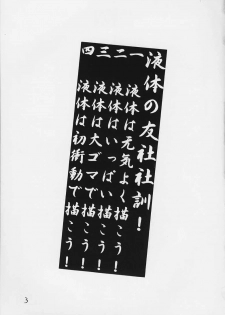 液体の友社社訓!
一 液体は元気よく描こう!
二 液体はいっぱい描こう!
三 液体は大ゴマで描こう!
四 液体は初衝動で描こう!
3